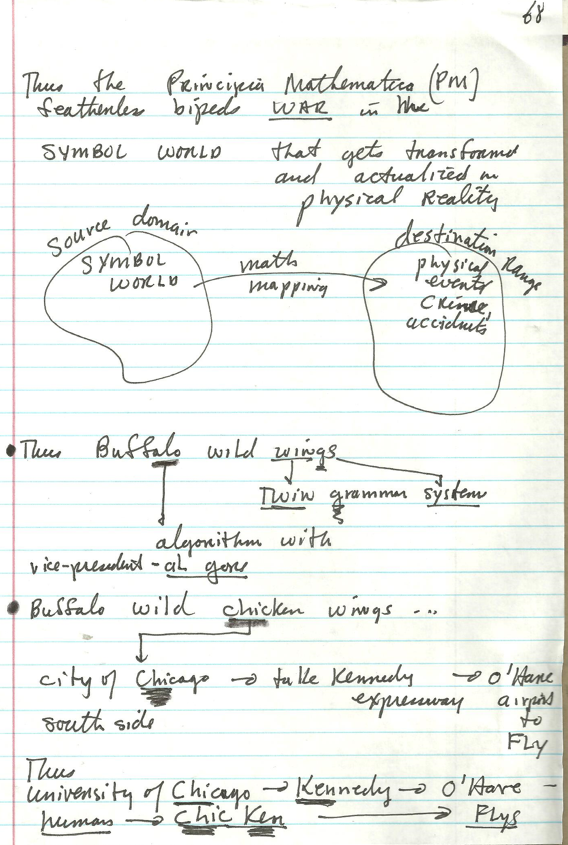 68
Thus the Principia Mathematica (PM)
featherless bipeds WAR in the
SYMBOL WORLD that gets transformed
and actualized in
physical Reality
Source domain
SYMBOL
WORLD
maths
mapping
destination Range
physical
events
Crime,
accidents
• Thus Buffalo wild wings
Twin grammar system
algorithm with
vice-president - al gore
• Buffalo wild chicken wings ...
city of Chicago → take Kennedy → O'Hare
expressway airport
south side to
FLY
Thus
university of Chicago → Kennedy → O'Hare -
human → Chic Ken → Flys